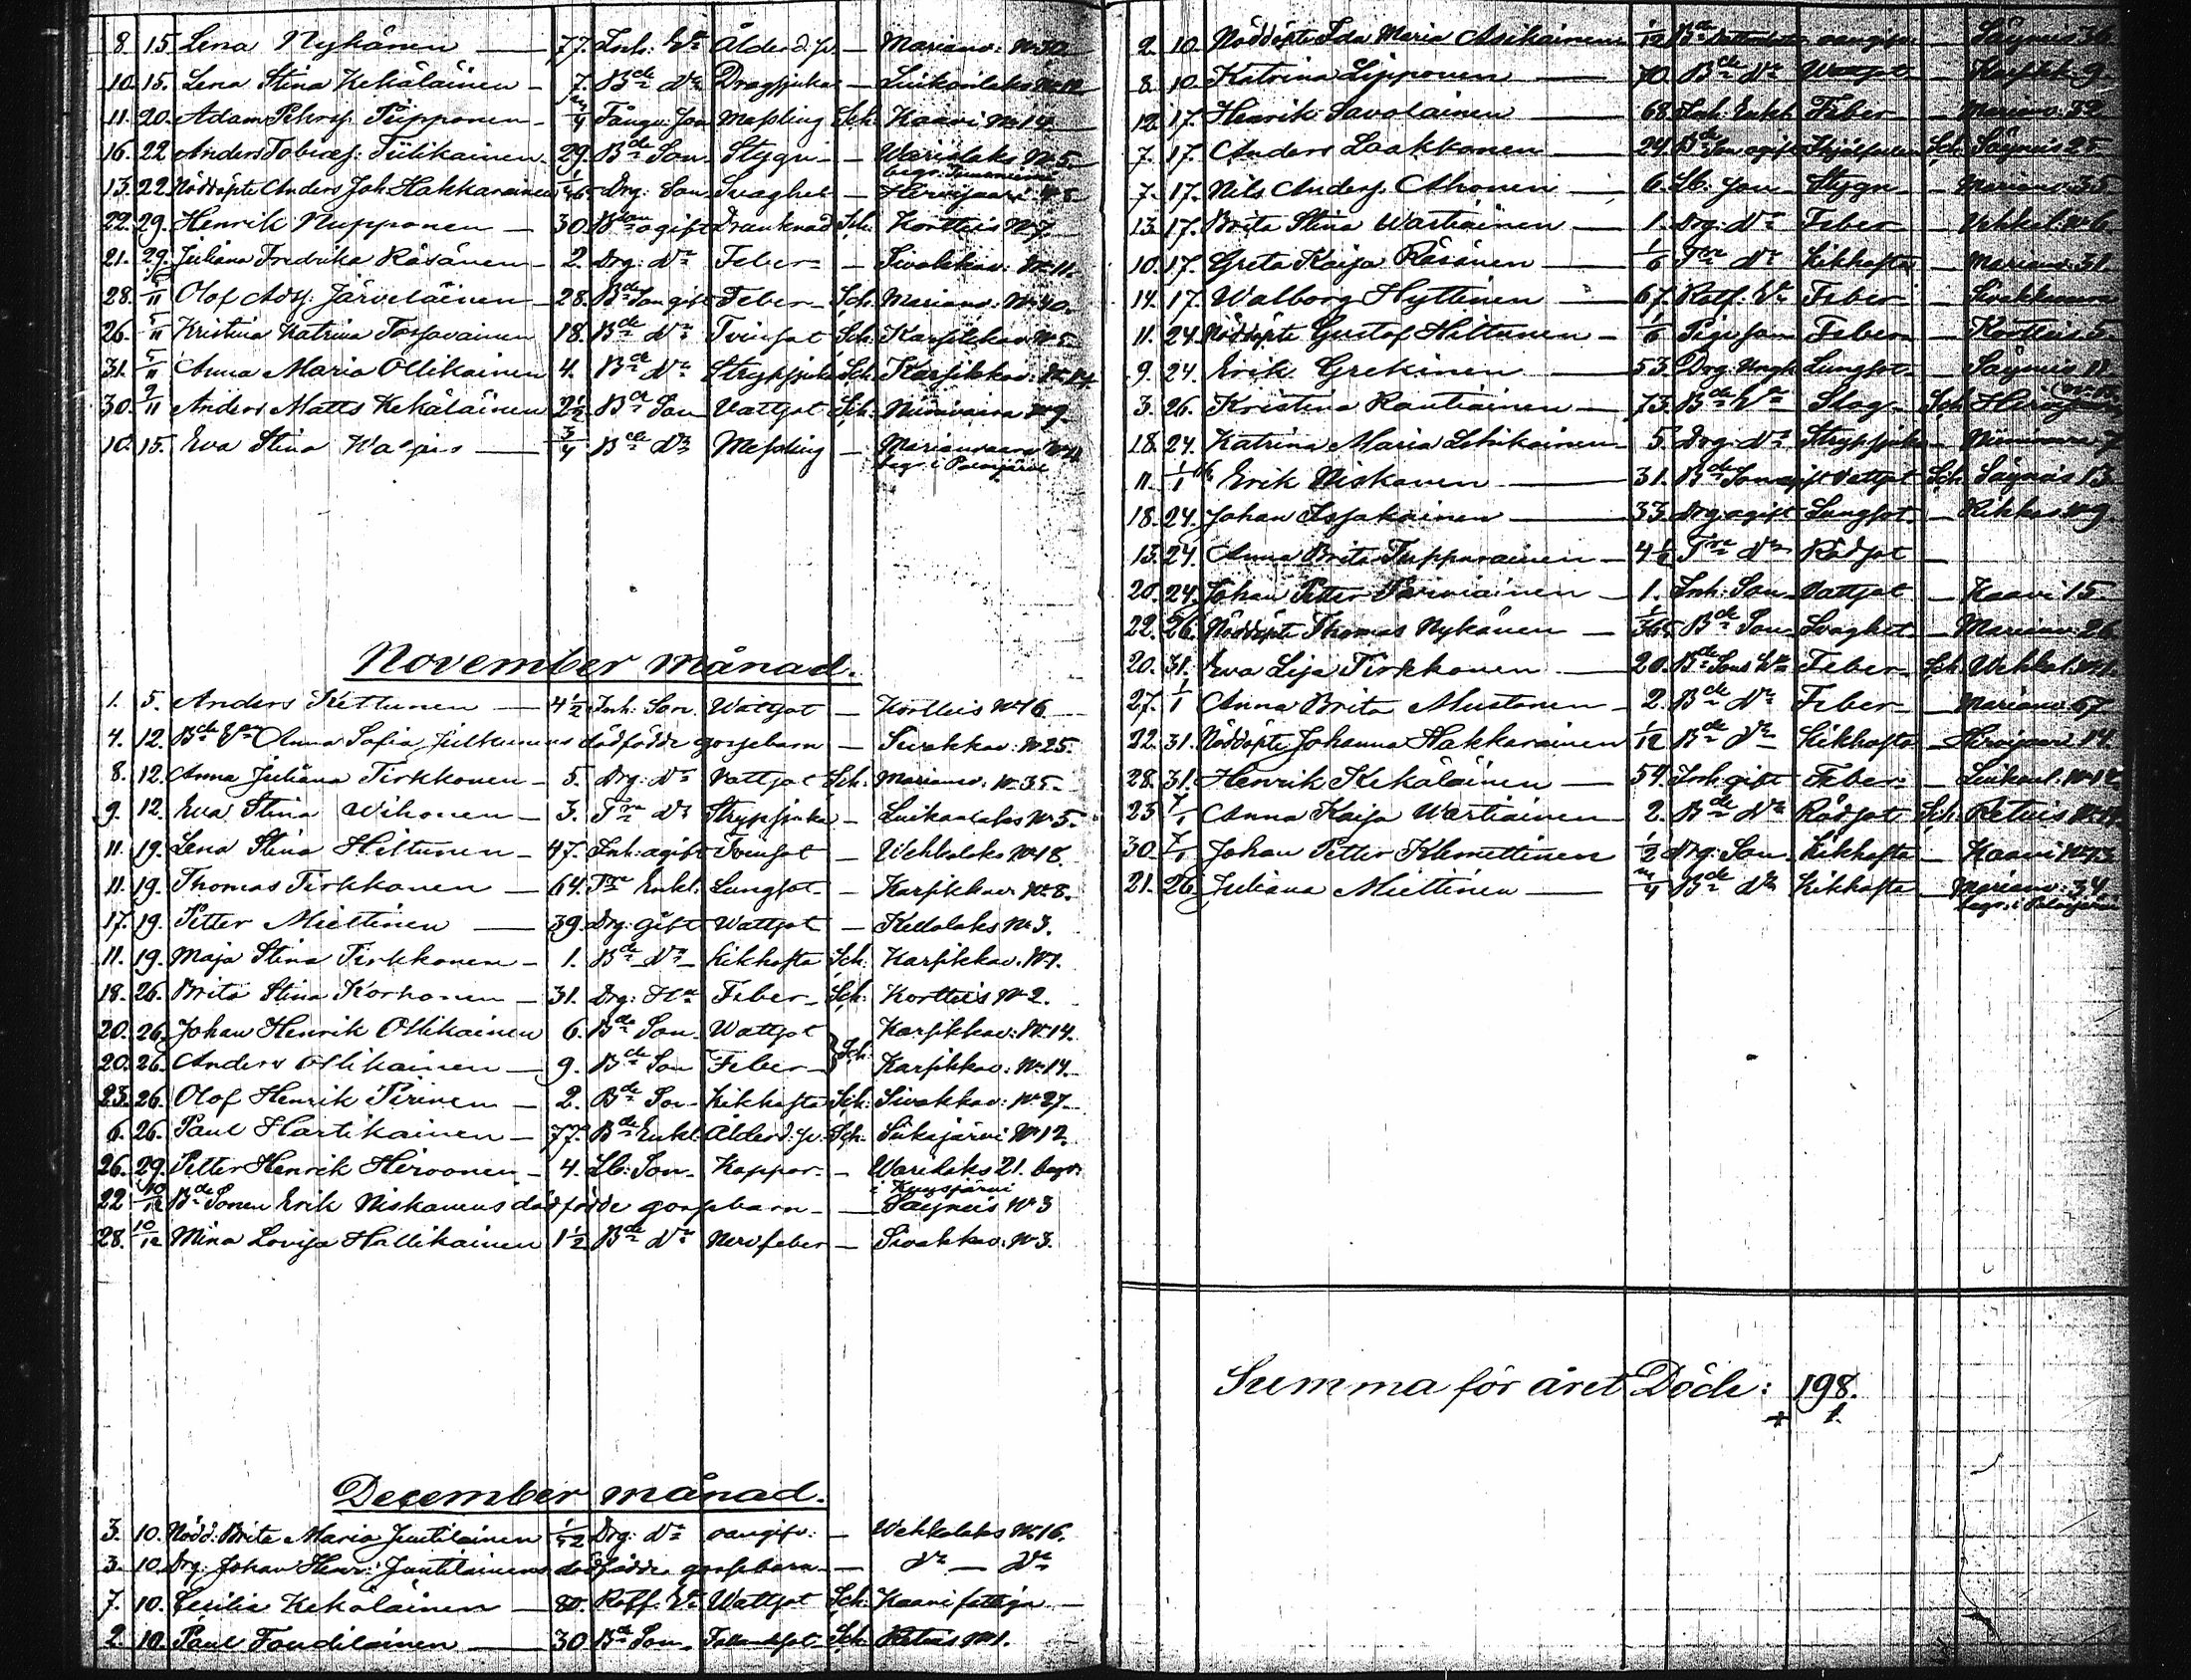 8. 15. Lena Nykänen — 77. Inh: Ea Ålderd. sv. — Marianv: No 32
10. 15. Lena Stina Kekäläinen — 7. Bde Dr Dragsjuka — Luikonlaks No 12
11. 20. Adam Pehrss. Piipponen — m/4 Fånge Son Messling Sch. Kaavi No 14
16. 22. Anders Tobiass. Tiilikainen — 29. Bde Son Stygn — Warislaks No 5.
13. 22. Nöddöpte Anders Joh. Hakkarainen Drg: Son Svaghet — Hirvisaari No 5
22. 29. Henrik Nupponen — 30. Bson ogift Dränknad Sch. Kortteis No 7.
21. 29. Juliana Fredrika Räsänen — 2. Drg: Dr Feber — Sivakkav: No 11.
28. 5/11 Olof Adss. Järveläinen — 28. Bde Son gift Feber — Sch. Marianv: No 40.
26. 5/11 Kristina Katrina Tossavainen 18. Bde Dr Tvinsot Sch. Karsikkav No 5
31. 5/11 Anna Maria Ollikainen 4. Bde Dr Strypsjuka Sch. Karsikkav: No 14
30. 9/11 Anders Matts. Kekäläinen 2 1/2 Bde Son Vattsot Sch. Niinivaara No 9
10. 15. Eva Stina — 3/4 Bde Dr Messling — Marianvaara No 4
begr. i Polvijärvi
November månad.
1. 5. Anders Kettunen — 4 1/2 Inh. Son. Wattsot — Kortteis No 16
4. 12. Bde Anna Sofia Julkunens dödfödde gossebarn — Sivakkav: No 25.
8. 12. Anna Juliana Tirkkonen — 5. Drg: Dr Vattsot Sch. Marianv. No 35.
9. 12. Eva Stina Wihonen — 3. Trp Dr Strypsjuka — Luikonlaks No 5.
11. 19. Lena Stina Hiltunen — 47. Inh: ogift Tvinsot — Wehkalaks No 18.
11. 19. Thomas Tirkkonen — 64. Trp Enkl. Lungsot — Karsikkav No 8.
17. 19. Petter Miettinen — 39. Drg: Gift Wattsot — Kettolaks No 3.
11. 19. Maja Stina Tirkkonen — 1. Bde Dr Kikhosta Sch. Karsikkav. No 7.
18. 26. Brita Stina Korhonen — 31. Drg: Hu Feber — Sch. Kortteis No 2.
20. 26. Johan Henrik Ollikainen 6. Bde Son Wattsot Karsikkav: No 14.
20. 26. Anders Ollikainen — 9. Bde Son Feber Sch. Karsikkav: No 14.
23. 26. Olof Henrik Pirinen — 2. Bde Son Kikhosta Sch. Sivakkav: No 27.
6. 26. Paul Hartikainen — 77. Bde Enkl. Ålderd. sv. Sch. Siikajärvi No 12.
26. 29. Petter Henrik Hirvonen — 4. Lb: Son Koppor — Warislaks 21. begr.
i Kuusjärvi
22. 10/12 Bde Sonen Erik Niskanens dödfödde gossebarn — Säyneis No 3
28. 10/12 Mina Lovisa Hallikainen 1 1/2 Bde Dr Nervfeber — Sivakkav: No 3.
December månad.
3. 10. Nödd: Brita Maria Juutilainen 1/52 Drg: Dr oangifv: — Wehkalaks No 16.
3. 10. Drg: Johan Henr: Juutilainens dödfödde gossebarn — Dr — Dr
7. 10. Cecilia Kekäläinen — 80. Rotf. Ea Wattsot Sch. Kaavi fattigv.
2. 10. Paul Toudilainen — 30 Bde Son Sch. Retuis No 1.
2. 10. Nöddöpte Ida Maria Asikainen 1/12 Bde oangifv. — Säyneis 36.
8. 10. Katrina Lipponen — 70. Bde Wattsot — Karsikk. 9
12. 17. Henrik Savolainen — 68. Inh: Enkl. Feber — Marianv: 32.
7. 17. Anders Laakkonen — 24. Bde Son ogift Sch. Säyneis 25
7. 17. Nils Anderss. Ahonen — 6. Lb. Son Stygn — Marianv: 35
13. 17. Brita Stina Wartiainen — 1. Drg: Dr Feber — Vehkal: No 6
10. 17. Greta Kaisa Räsänen — 1/6 Trp Dr Kikhosta — Marianv: 31.
14. 17. Walborg Hyttinen — 67. Rotf: Ea Feber — Sivakkavaara
11. 24. Nöddöpte Gustaf Hiltunen — 1/6 Pigoson Feber — Kortteis 5.
9. 24. Erik Grekinen — 53. Drg: Ungk Lungsot — Säyneis 11
3. 26. Kristina Rautiainen — 73. Bde Ea Slag — Sch.
18. 24. Katrina Maria Lehikoinen 5. Drg: Dr Strypsjuka — Niinivaara 7
11. 1/1 Erik Niskanen — 31. Bde Son ogift Vattsot Sch. Säyneis 13.
18. 24. Johan Issakainen — 33. Drg: ogift Lungsot — Rikkas No 9.
13. 24. Anna Brita Tuppurainen — 4 1/2 Trp Dr Rödsot —
20. 24. Johan Petter Parviainen — 1. Inh: Son Vattsot — Kaavi 15.
22. 26. Nöddöpte Thomas Nykänen — 1/365 Bde Son Svaghet — Marianv: 26
20. 31. Eva Lisa Tirkkonen — 20. Bde Sons Hu Feber — Sch. Vehkal. No 1.
27. 1/1 Anna Brita Mustonen — 2. Bde Dr Feber — Marianv: 67
22. 31. Nöddöpte Johanna Hakkarainen 1/12 Bde Dr Kikhosta — Hirvisaari 14.
28. 31. Henrik Kekäläinen — 59. Inh: gift Feber — Luikonl. No 12.
23. 7/1 Anna Kaisa Wartiainen 2. Bde Dr Rödsot Sch. Retuis
30. 7/1 Johan Petter Klemettinen 1/2 Drg: Son Kikhosta — Kaavi No 13
21. 26. Juliana Miettinen — m/4 Bde Dr Kikhosta — Marianv: 34
begr. i Polvijärvi
Summa för året Döde: 198.
+ 1.